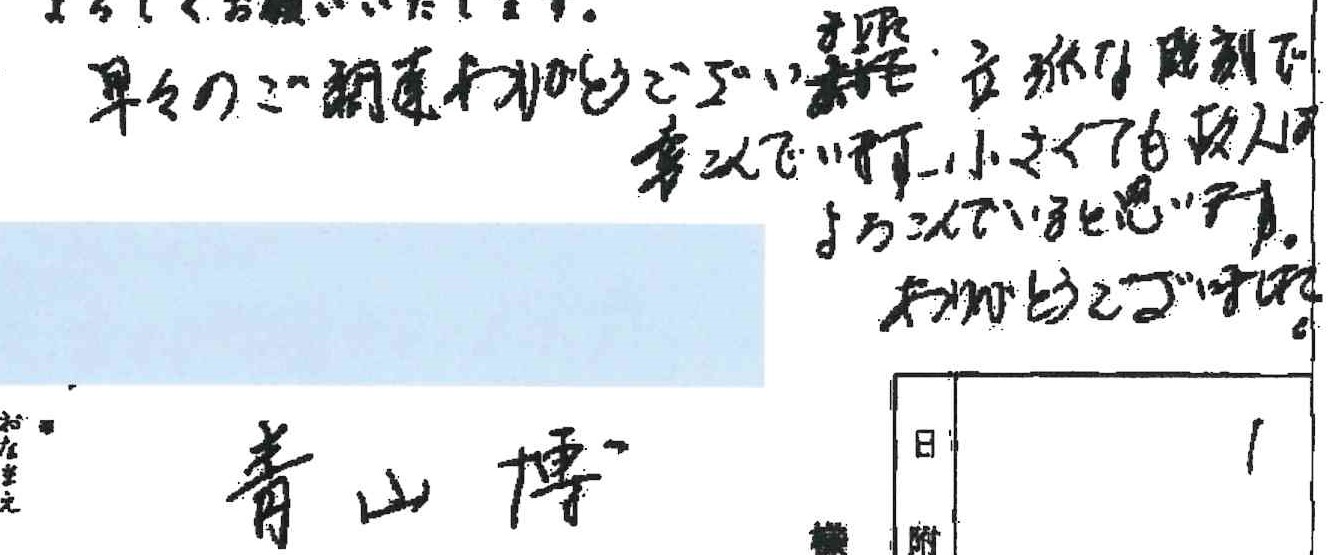 よろしくお願いいたします。
早々のご調達ありがとうございました
立派な彫刻で
喜こんでいます。小さくても故人は
よろこんでいると思います。
ありがとうございました。
おなまえ
青山 博
様
日附
1